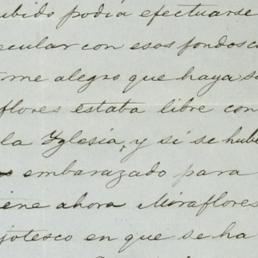 hubido podía efectuarse
pecular con esos fondos
me alegro que haya
flores estaba libre con
la Yglesia, y si se hubi
embarazado para
iene ahora Miraflores
jotesco en que se ha